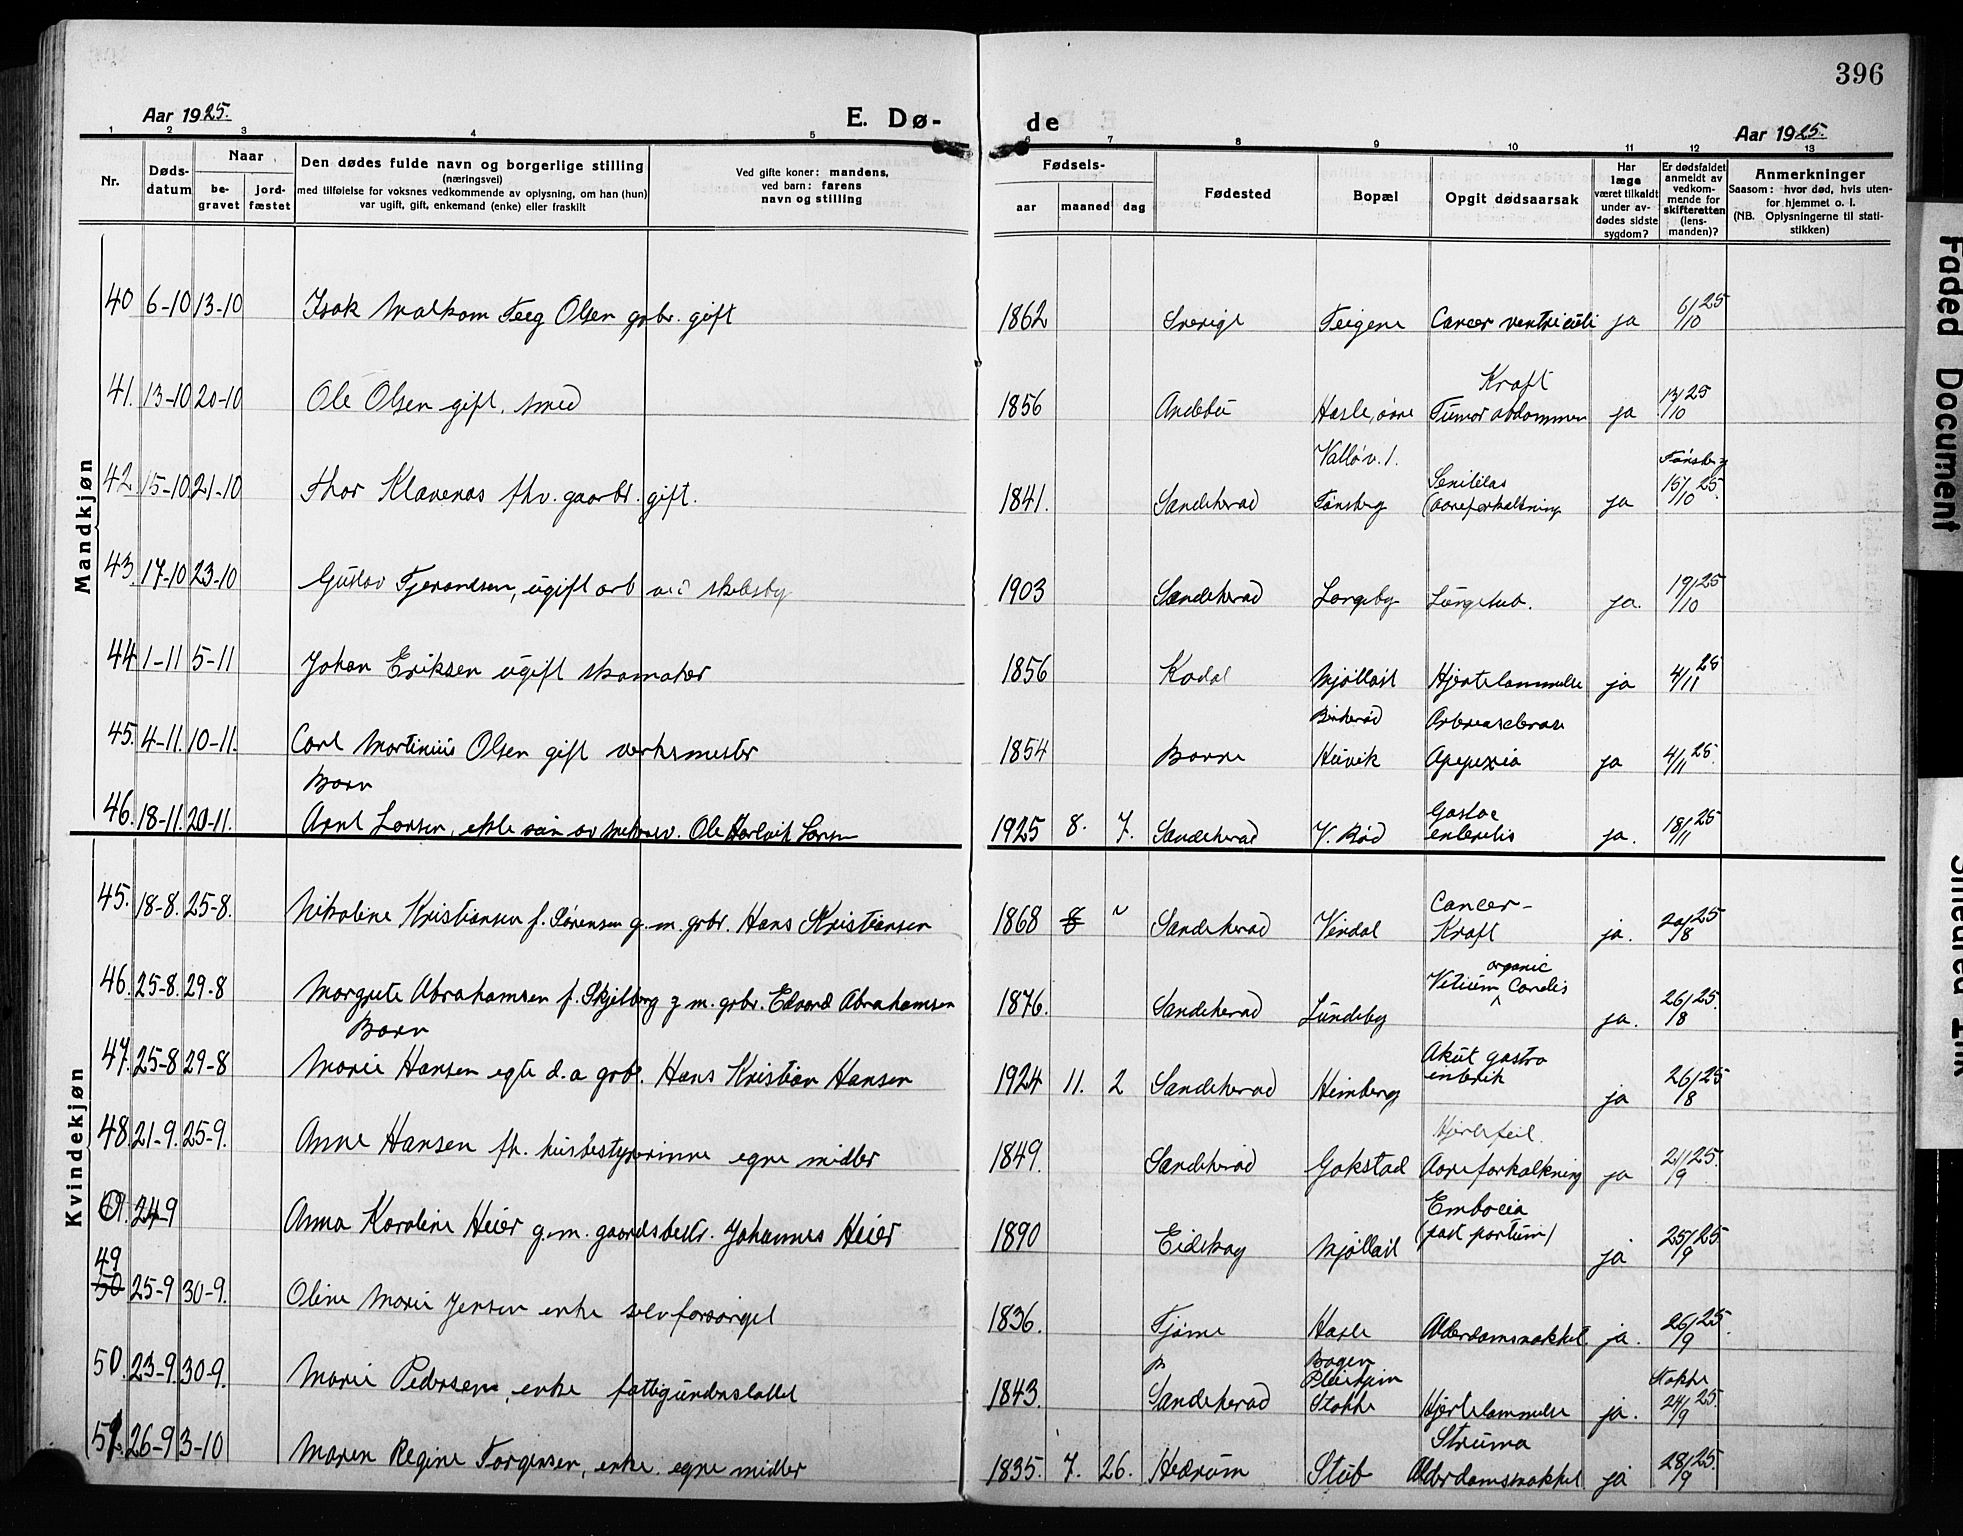 396
Aar 1925.
E. Dø- de
Aar 1925.
1 2 3 4 5 6 7 8 9 10 11 12 13
Nr.
Døds-datum
Naar
be-gravet
jord-fæstet
Den dødes fulde navn og borgerlige stilling
(næringsvei)
med tilføielse for voksnes vedkommende av oplysning, om han (hun)
var ugift, gift, enkemand (enke) eller fraskilt
Ved gifte koner: mandens,
ved barn: farens
navn og stilling
Fødsels-
aar maaned dag
Fødested
Bopæl
Opgit dødsaarsak
Har læge været tilkaldt under av-dødes sidste sygdom?
Er dødsfaldet anmeldt av vedkom-mende for skifteretten (lens-manden)?
Anmerkninger
Saasom: hvor død, hvis uten-
for hjemmet o. l.
(NB. Oplysningerne til stati-
stikken)
Mandkjøn
40 6-10 13-10 Isak Malkom Feeg Olsen gbr. gift 1862 Sverige Feigene Cancer ventriculi ja 6/10 25
41. 13-10 20-10 Ole Olsen gift, smed 1856 Andebu Hasle, øvre Kraft Tumor abdommen ja 13/10 25
42 15-10 21-10 Thor Klavenas fhv. gaarbr. gift. 1841. Sandeherad Vallø v. 1. Tønsberg Senilitas (aareforkalkning ja Tønsberg 15/10 25.
43. 17-10 23-10 Gustav Tjerandsen, ugift arb ved skibsby 1903 Sandeherad Langeby Lungetub. ja. 19/10 25
44 1-11 5-11 Johan Eriksen ugift skomaker 1856 Kodal Mjølløst Hjertelammelse ja 4/11 25
45. 4-11. 10-11. Carl Martinius Olsen gift verksmester 1854 Borre Huvik Apopexia ja 4/11 25.
Barn
46. 18-11. 20-11. Arnt Larsen, ekte søn av Ole Hartvik Larsen 1925 8. 7. Sandeherad V. Rød Gastoe enteritis ja. 18/11 25
Kvindekjøn
45. 18-8. 25-8. Nikoline Kristiansen f. Sørensen g. m. grbr. Hans Kristiansen 1868 8 Sandeherad Vindal Cancer- Kraft ja. 20/8 25
46. 25-8. 29-8 Margrete Abrahamsen f. Skjelberg g m. grbr. Edvard Abrahamsen 1876. Sandeherad Lundeby Vitium organic Cordis ja. 26/8 25.
Barn
47. 25-8 29-8 Marie Hansen egte d. a grbr. Hans Kristian Hansen 1924 11. 2 Sandeherad Himberg Akut gastro enterik ja 26/8 25
48. 21-9. 25-9. Anne Hansen fh. husbestyrerinne egne midler 1849. Sandeherad Gokstad Hjertefeil. Aareforkalkning ja 21/9 25.
49. 24-9 Anna Karoline Heier g. m. gaardsbestr. Johannes Heier 1890 Eidskog Mjølløst Embolia (post portum) ja 25/9 25.
49
50 25-9 30-9. Oline Marie Jensen enke selvforsørget 1836. Tjøme Hasle Alderdomssvakket ja. 26/9 25.
50. 23-9. 30-9. Marie Pedersen, enke fattigunderstøttet 1843. Sandeherad Bogen Pleiehjem Stokke Hjertelammelse ja. Stokke 24/9 25.
51. 26-9 3-10 Maren Regine Torgersen, enke. egne midler 1835. 7. 26. Hedrum Stub Struma Alderdomssvakket ja 28/9 25.
Faded Document
Smeared Ink